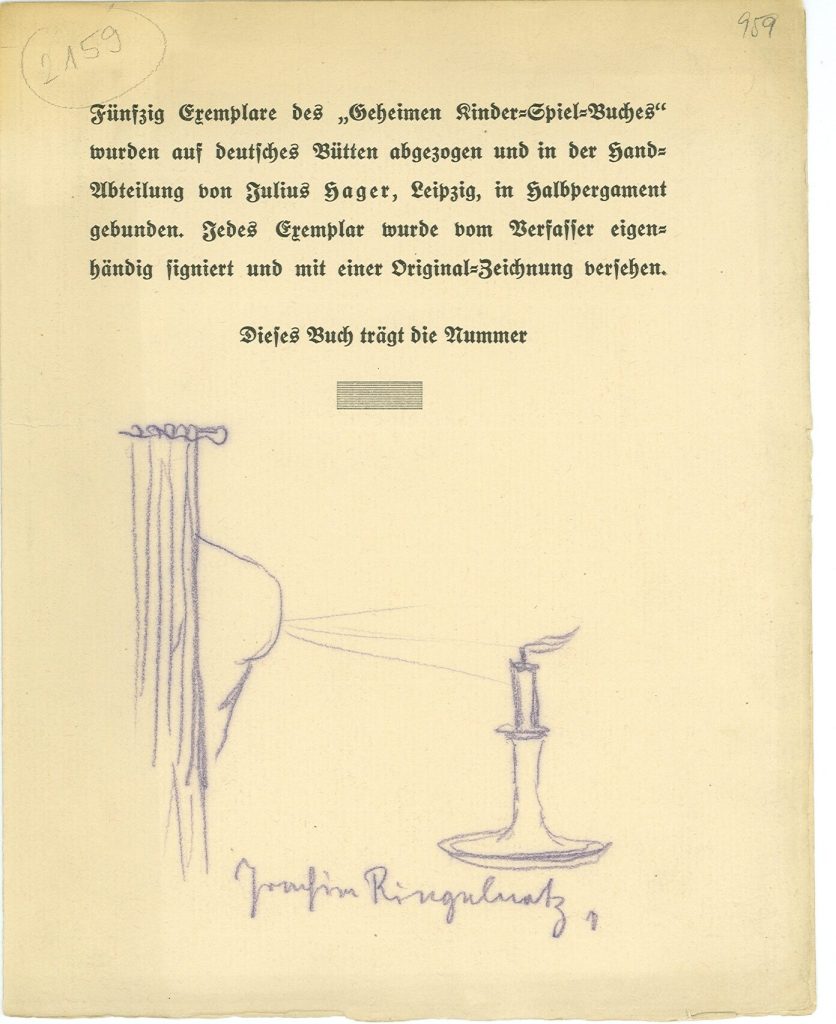 2159
959
Fünfzig Exemplare des „Geheimen Kinder=Spiel=Buches“
wurden auf deutsches Bütten abgezogen und in der Hand=
Abteilung von Julius Hager, Leipzig, in Halbpergament
gebunden. Jedes Exemplar wurde vom Verfasser eigen=
händig signiert und mit einer Original=Zeichnung versehen.
Dieses Buch trägt die Nummer
Joachim Ringelnatz